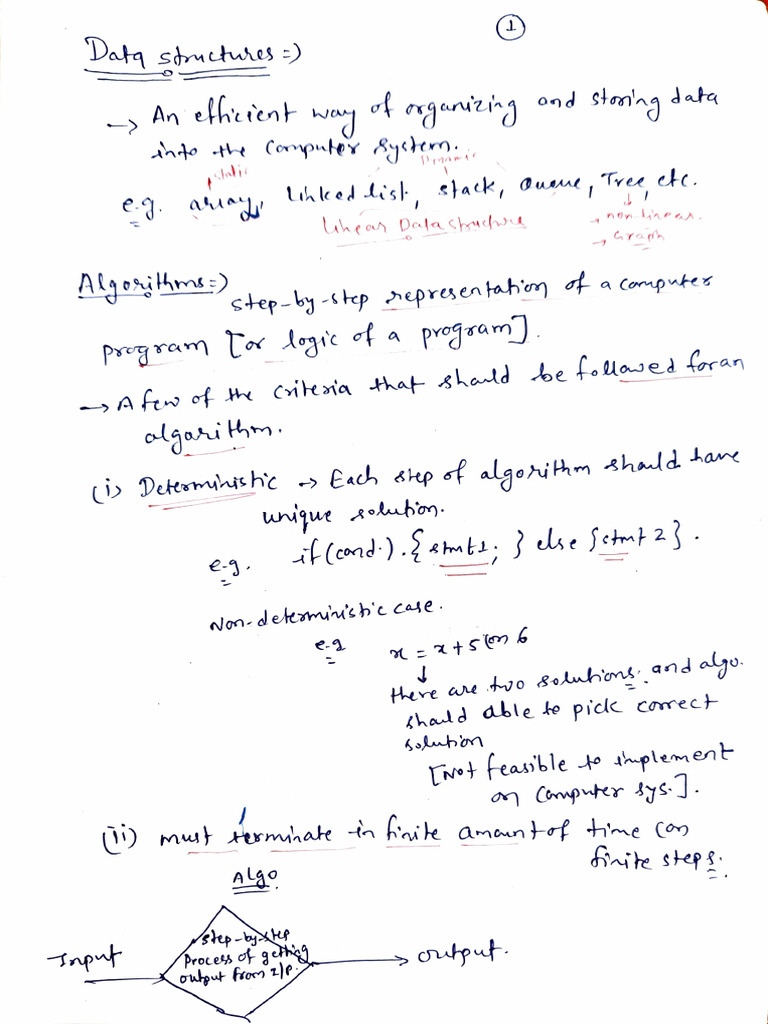 1
Data structures =>
→ An efficient way of organizing and storing data
into the computer system.
static
Dynamic
e.g. array, linked list, stack, Queue, Tree, etc.
Linear Data structure
→ non-linear.
→ Graph
Algorithms =>
step-by-step representation of a computer
program [or logic of a program].
→ A few of the criteria that should be followed for an
algarithm.
(i) Deterministic → Each step of algorithm should have
unique solution.
e.g. if (cond.). { stmt1; } else { stmt 2 }.
Non-deterministic case.
e.g x = x + 5 (or) 6
there are two solutions. and algo.
should able to pick correct
solution
[Not feasible to implement
on computer sys.].
(ii) must terminate in finite amount of time (or)
finite steps.
Algo
step-by-step
Input Process of getting output.
output from I/P.